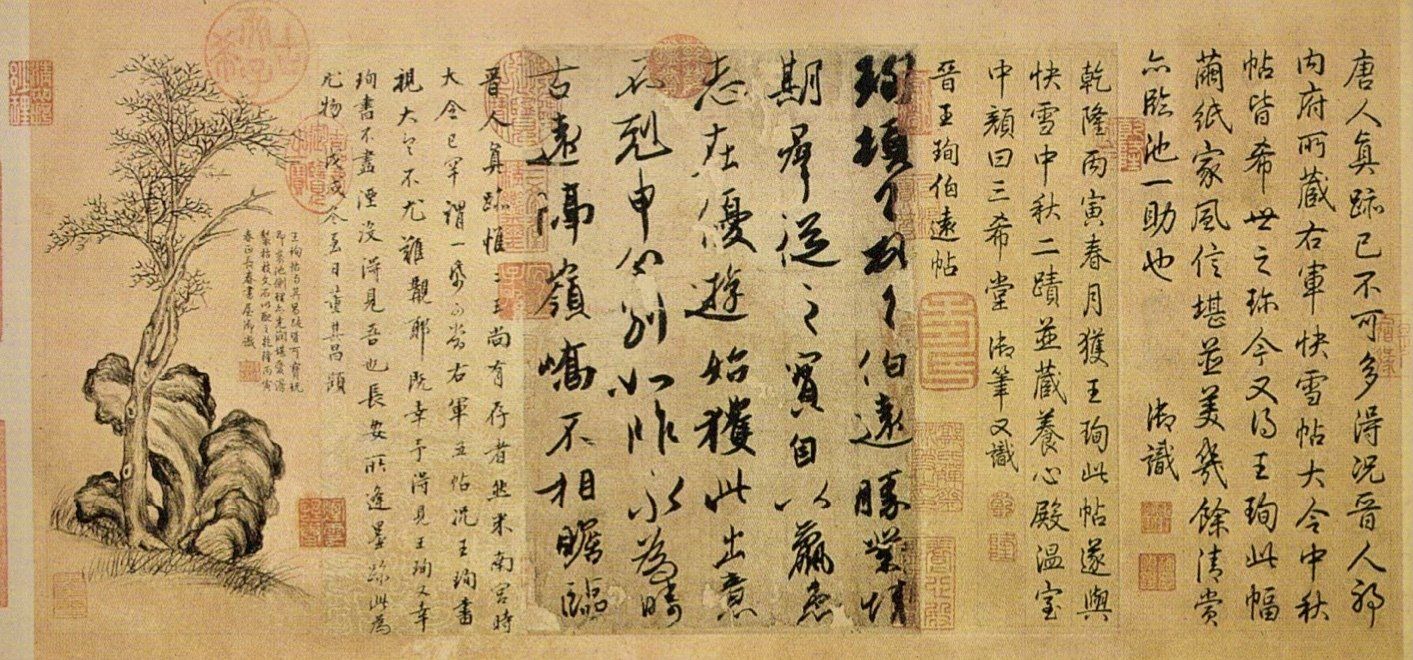 唐人真跡已不可多得况晉人耶
内府所藏右軍快雪帖大令中秋
帖皆希世之珍今又得王珣此幅
繭紙家風信堪並美幾餘清賞
亦臨池一助也　御識
乾隆丙寅春月獲王珣此帖遂與
快雪中秋二蹟並藏養心殿溫室
中顏曰三希堂　御筆又識
晉王珣伯遠帖
珣頓首頓首伯遠勝業情
期群從之寶自以羸患
志在優遊始獲此出意
不剋申分別如昨永為疇
古遠隔嶺嶠不相瞻臨
晉人真跡惟二王尚有存者然米南宮時
大令已罕謂一紙可當右軍五帖况王珣書
視大令不尤難覯耶既幸予得見王珣又幸
珣書不盡湮沒得見吾也長安所逢墨跡此為
尤物　戊戌冬至日董其昌題
王珣帖與其昌跋皆可寶玩
即裝池側理亦光潤堪愛漫
製枯枝文石以配之乾隆丙寅
春正長春書屋御識